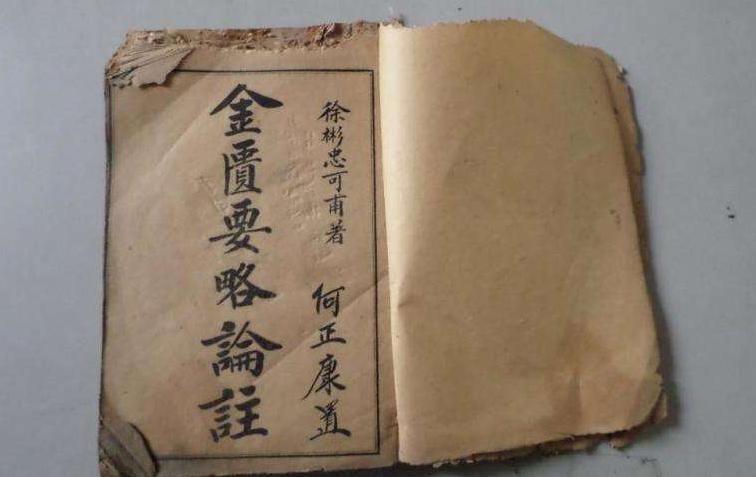 徐彬忠可甫著 何正康置
金匱要略論註